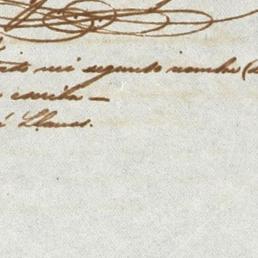 mi segundo nombre (
escriba —
Llamos.